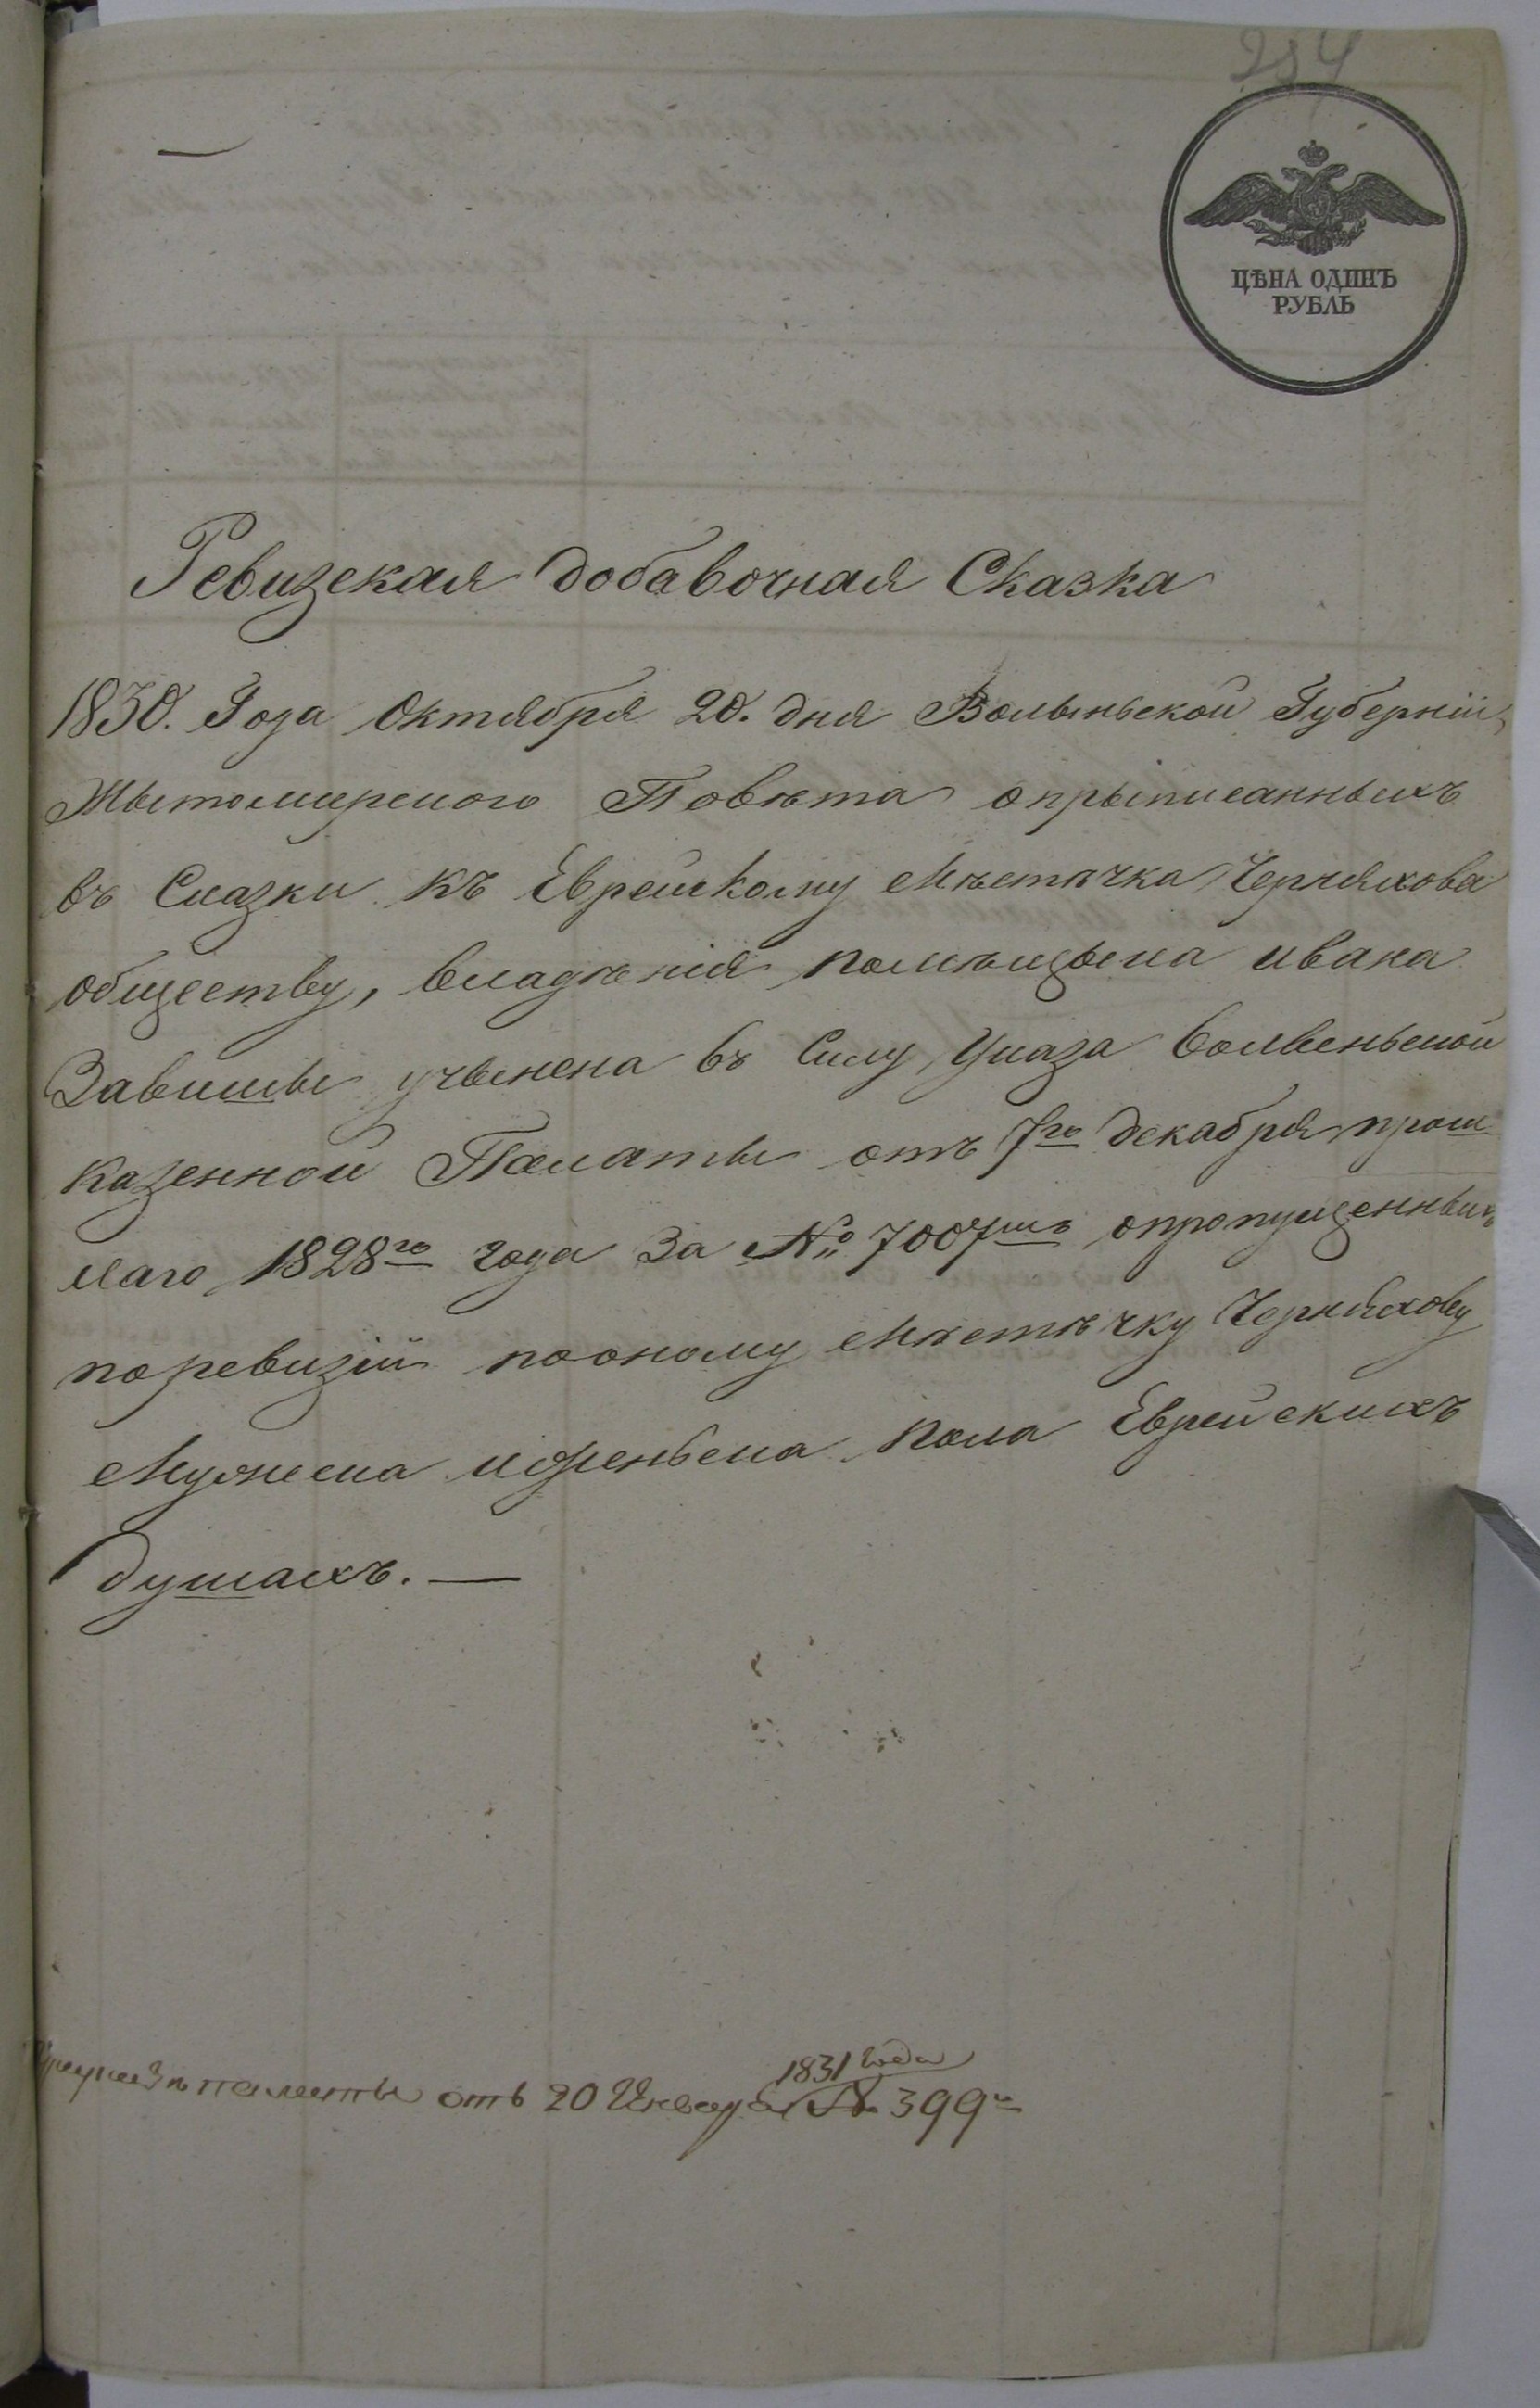 254
ЦѢНА ОДИНЪ
РУБЛЬ
Ревизская добавочная Сказка
1830. Года Октября 20. дня Волыньской Губернiи,
Жытомирского Повѣта опрыписанныхъ
въ Сказки къ Еврейскому мѣстѣчка Черняхова
обществу, владѣнiя помѣщыка ивана
Завишы учынена въ Силу Указа Волыньской
Казенной Палаты отъ 7го декабря прош
лаго 1828го года За № 7007мъ опропущенныхъ
поревизiи пооному мѣстѣчку Черняхову
Мужеска иженьска пола Еврейскихъ
душахъ. —
палаты отъ 20 Января 1831 года № 399